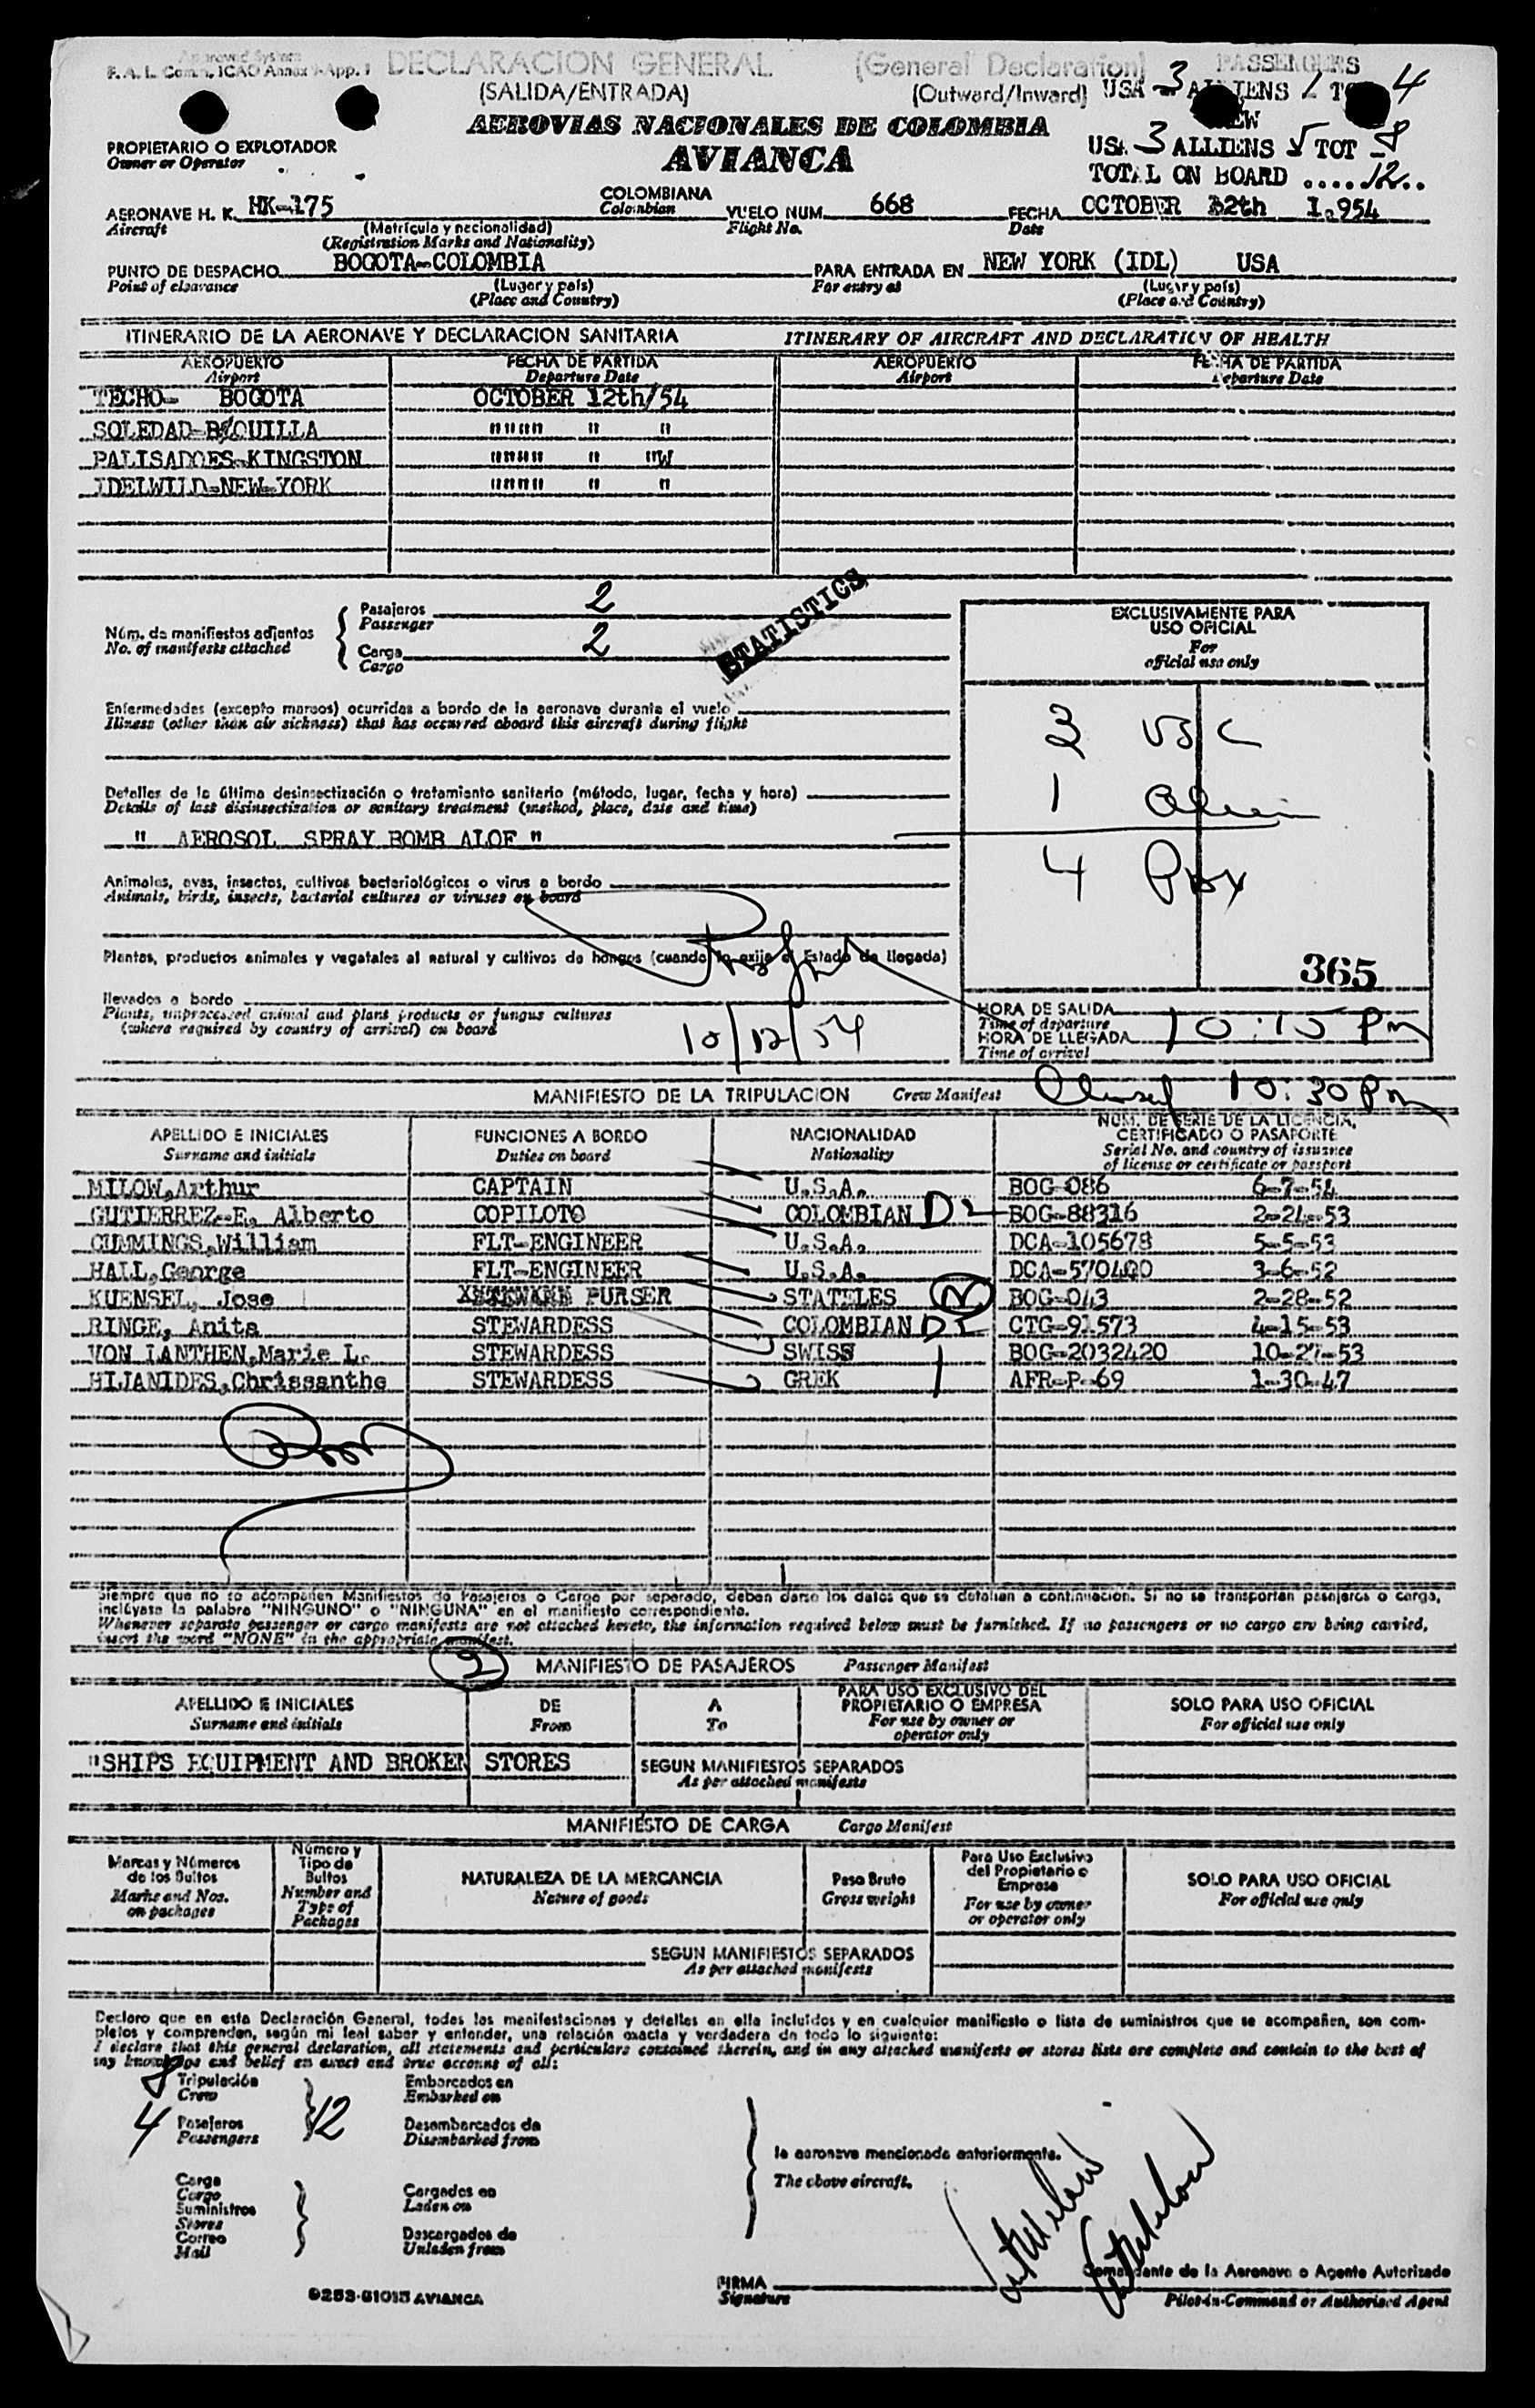 F. A. L. Comm. ICAO Annex 9-App. 1 DECLARACION GENERAL (General Declaration) PASSENGERS
(SALIDA/ENTRADA) (Outward/Inward) USA 3 ALLIENS 1 TOT 4
AEROVIAS NACIONALES DE COLOMBIA
AVIANCA
PROPIETARIO O EXPLOTADOR
Owner or Operator
CREW
USA 3 ALLIENS 5 TOT 8
TOTAL ON BOARD ....12..
AERONAVE H. K. HK-175 COLOMBIANA VUELO NUM. 668 FECHA OCTOBER 12th 1.954
Aircraft Colombian Flight No. Date
(Matrícula y nacionalidad)
(Registration Marks and Nationality)
PUNTO DE DESPACHO BOGOTA-COLOMBIA PARA ENTRADA EN NEW YORK (IDL) USA
Point of clearance (Lugar y país) For entry at (Lugar y país)
(Place and Country) (Place and Country)
ITINERARIO DE LA AERONAVE Y DECLARACION SANITARIA ITINERARY OF AIRCRAFT AND DECLARATION OF HEALTH
AEROPUERTO FECHA DE PARTIDA AEROPUERTO FECHA DE PARTIDA
Airport Departure Date Airport Departure Date
TECHO- BOGOTA OCTOBER 12th/54
SOLEDAD-B/QUILLA """" " "
PALISADOES-KINGSTON """"" " "W
IDELWILD-NEW-YORK """"" " "
Núm. de manifiestos adjuntos
No. of manifests attached
Pasajeros 2
Passenger
Carga 2
Cargo
STATISTICS
EXCLUSIVAMENTE PARA
USO OFICIAL
For
official use only
2 USC
1 alien
4 Pax
365
Enfermedades (excepto mareos) ocurridas a bordo de la aeronave durante el vuelo
Illness (other than air sickness) that has occurred aboard this aircraft during flight
Detalles de la última desinsectización o tratamiento sanitario (método, lugar, fecha y hora)
Details of last disinsectization or sanitary treatment (method, place, date and time)
" AEROSOL SPRAY BOMB ALOF "
Animales, aves, insectos, cultivos bacteriológicos o virus a bordo
Animals, birds, insects, bacterial cultures or viruses on board
Plantas, productos animales y vegetales al natural y cultivos de hongos (cuando lo exija el Estado de llegada)
llevados a bordo
Plants, unprocessed animal and plant products or fungus cultures
(where required by country of arrival) on board
10/12/54
HORA DE SALIDA
Time of departure
HORA DE LLEGADA 10:15 Pm
Time of arrival
10:30 Pm
MANIFIESTO DE LA TRIPULACION Crew Manifest
APELLIDO E INICIALES FUNCIONES A BORDO NACIONALIDAD NUM. DE SERIE DE LA LICENCIA, CERTIFICADO O PASAPORTE
Surname and initials Duties on board Nationality Serial No. and country of issuance of license or certificate or passport
MILOW,Arthur CAPTAIN U.S.A. BOG-086 6-7-54
GUTIERREZ-F, Alberto COPILOTO COLOMBIAN D2 BOG-88316 2-24-53
CUMMINGS,William FLT-ENGINEER U.S.A. DCA-105678 5-5-53
HALL,George FLT-ENGINEER U.S.A. DCA-570420 3-6-52
KUENSEL, Jose PURSER STATELES N BOG-043 2-28-52
RINGE, Anita STEWARDESS COLOMBIAN D2 CTG-91573 4-15-53
VON LANTHEN,Marie L. STEWARDESS SWISS BOG-2032420 10-27-53
HIJANIDES,Chrissanthe STEWARDESS GREK AFR-P-69 1-30-47
Siempre que no se acompañen Manifiestos de Pasajeros o Carga por separado, deben darse los datos que se detallan a continuación. Si no se transportan pasajeros o carga,
inclúyase la palabra "NINGUNO" o "NINGUNA" en el manifiesto correspondiente.
Whenever separate passenger or cargo manifests are not attached hereto, the information required below must be furnished. If no passengers or no cargo are being carried,
insert the word "NONE" in the appropriate manifest.
2 MANIFIESTO DE PASAJEROS Passenger Manifest
APELLIDO E INICIALES DE A PARA USO EXCLUSIVO DEL PROPIETARIO O EMPRESA SOLO PARA USO OFICIAL
Surname and initials From To For use by owner or operator only For official use only
"SHIPS EQUIPMENT AND BROKEN STORES SEGUN MANIFIESTOS SEPARADOS
As per attached manifests
MANIFIESTO DE CARGA Cargo Manifest
Marcas y Números de los Bultos Número y Tipo de Bultos NATURALEZA DE LA MERCANCIA Peso Bruto Para Uso Exclusivo del Propietario o Empresa SOLO PARA USO OFICIAL
Marks and Nos. on packages Number and Type of Packages Nature of goods Gross weight For use by owner or operator only For official use only
SEGUN MANIFIESTOS SEPARADOS
As per attached manifests
Declaro que en esta Declaración General, todas las manifestaciones y detalles en ella incluídos y en cualquier manifiesto o lista de suministros que se acompañen, son com-
pletos y comprenden, según mi leal saber y entender, una relación exacta y verdadera de todo lo siguiente:
I declare that this general declaration, all statements and particulars contained therein, and in any attached manifests or stores lists are complete and contain to the best of
my knowledge and belief an exact and true account of all:
8 Tripulación Embarcados en
Crew Embarked on
4 Pasajeros 12 Desembarcados de
Passengers Disembarked from
la aeronave mencionada anteriormente.
The above aircraft.
Carga
Cargo Cargados en
Suministros Laden on
Stores
Correo Descargados de
Mail Unladen from
FIRMA
Signature
Comandante de la Aeronave o Agente Autorizado
Pilot-in-Command or Authorized Agent
9253-81015 AVIANCA